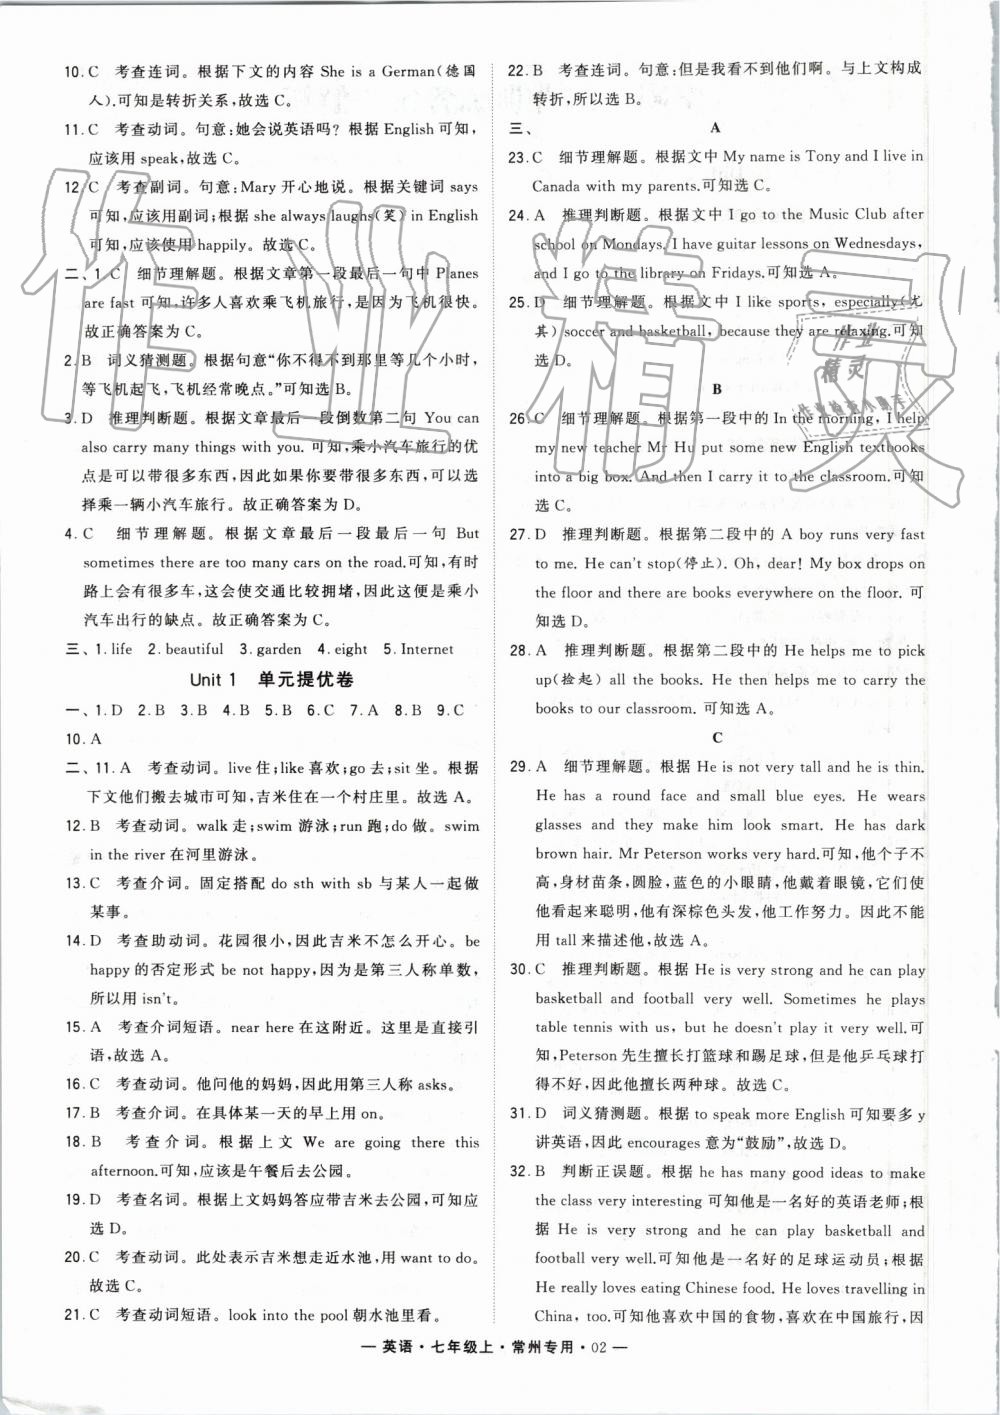 10. C 考查连词。根据下文的内容 She is a German(德国
人).可知是转折关系,故选 C。
11. C 考查动词。句意:她会说英语吗? 根据 English 可知,
应该用 speak,故选 C。
12. C 考查副词。句意:Mary 开心地说。根据关键词 says
可知,应该用副词;根据 she always laughs(笑) in English
可知,应该使用 happily。故选 C。
二、1. C 细节理解题。根据文章第一段最后一句中 Planes
are fast 可知,许多人喜欢乘飞机旅行,是因为飞机很快。
故正确答案为 C。
2. B 词义猜测题。根据句意“你不得不到那里等几个小时,
等飞机起飞,飞机经常晚点。”可知选 B。
3. D 推理判断题。根据文章最后一段倒数第二句 You can
also carry many things with you. 可知,乘小汽车旅行的优
点是可以带很多东西,因此如果你要带很多东西,可以选
择乘一辆小汽车旅行。故正确答案为 D。
4. C 细节理解题。根据文章最后一段最后一句 But
sometimes there are too many cars on the road.可知,有时
路上会有很多车,这会使交通比较拥堵,因此这便是乘小
汽车出行的缺点。故正确答案为 C。
三、1. life 2. beautiful 3. garden 4. eight 5. Internet
Unit 1 单元提优卷
一、1. D 2. B 3. B 4. B 5. B 6. C 7. A 8. B 9. C
10. A
二、11. A 考查动词。live 住;like 喜欢;go 去;sit 坐。根据
下文他们搬去城市可知,吉米住在一个村庄里。故选 A。
12. B 考查动词。walk 走;swim 游泳;run 跑;do 做。swim
in the river 在河里游泳。
13. C 考查介词。固定搭配 do sth with sb 与某人一起做
某事。
14. D 考查助动词。花园很小,因此吉米不怎么开心。be
happy 的否定形式 be not happy,因为是第三人称单数,
所以用 isn't。
15. A 考查介词短语。near here 在这附近。这里是直接引
语,故选 A。
16. C 考查动词。他问他的妈妈,因此用第三人称 asks。
17. B 考查介词。在具体某一天的早上用 on。
18. B 考查介词。根据上文 We are going there this
afternoon.可知,应该是午餐后去公园。
19. D 考查名词。根据上文妈妈答应带吉米去公园,可知应
选 D。
20. C 考查动词。此处表示吉米想走近水池,用 want to do。
故选 C。
21. C 考查动词短语。look into the pool 朝水池里看。
22. B 考查连词。句意:但是我看不到他们啊。与上文构成
转折,所以选 B。
三、 A
23. C 细节理解题。根据文中 My name is Tony and I live in
Canada with my parents.可知选 C。
24. A 推理判断题。根据文中 I go to the Music Club after
school on Mondays. I have guitar lessons on Wednesdays,
and I go to the library on Fridays.可知选 A。
25. D 细节理解题。根据文中 I like sports, especially(尤
其) soccer and basketball, because they are relaxing.可知
选 D。
B
26. C 细节理解题。根据第一段中的 In the morning, I help
my new teacher Mr Hu put some new English textbooks
into a big box. And then I carry it to the classroom.可知
选 C。
27. D 推理判断题。根据第二段中的 A boy runs very fast
to me. He can't stop(停止). Oh, dear! My box drops on
the floor and there are books everywhere on the floor. 可
知选 D。
28. A 推理判断题。根据第二段中的 He helps me to pick
up(捡起) all the books. He then helps me to carry the
books to our classroom. 可知选 A。
C
29. A 细节理解题。根据 He is not very tall and he is thin.
He has a round face and small blue eyes. He wears
glasses and they make him look smart. He has dark
brown hair. Mr Peterson works very hard.可知,他个子不
高,身材苗条,圆脸,蓝色的小眼睛,他戴着眼镜,它们使
他看起来聪明,他有深棕色头发,他工作努力。因此不能
用 tall 来描述他,故选 A。
30. C 推理判断题。根据 He is very strong and he can play
basketball and football very well. Sometimes he plays
table tennis with us, but he doesn't play it very well.可
知,Peterson 先生擅长打篮球和踢足球,但是他乒乓球打
得不好,因此他擅长两种球。故选 C。
31. D 词义猜测题。根据 to speak more English 可知要多 y
讲英语,因此 encourages 意为“鼓励”,故选 D。
32. B 判断正误题。根据 he has many good ideas to make
the class very interesting 可知他是一名好的英语老师;根
据 He is very strong and he can play basketball and
football very well.可知他是一名好的足球运动员;根据
He really loves eating Chinese food. He loves travelling in
China, too.可知他喜欢中国的食物,喜欢在中国旅行,因
— 英语·七年级上·常州专用·02 —
作业精灵
作业
精灵